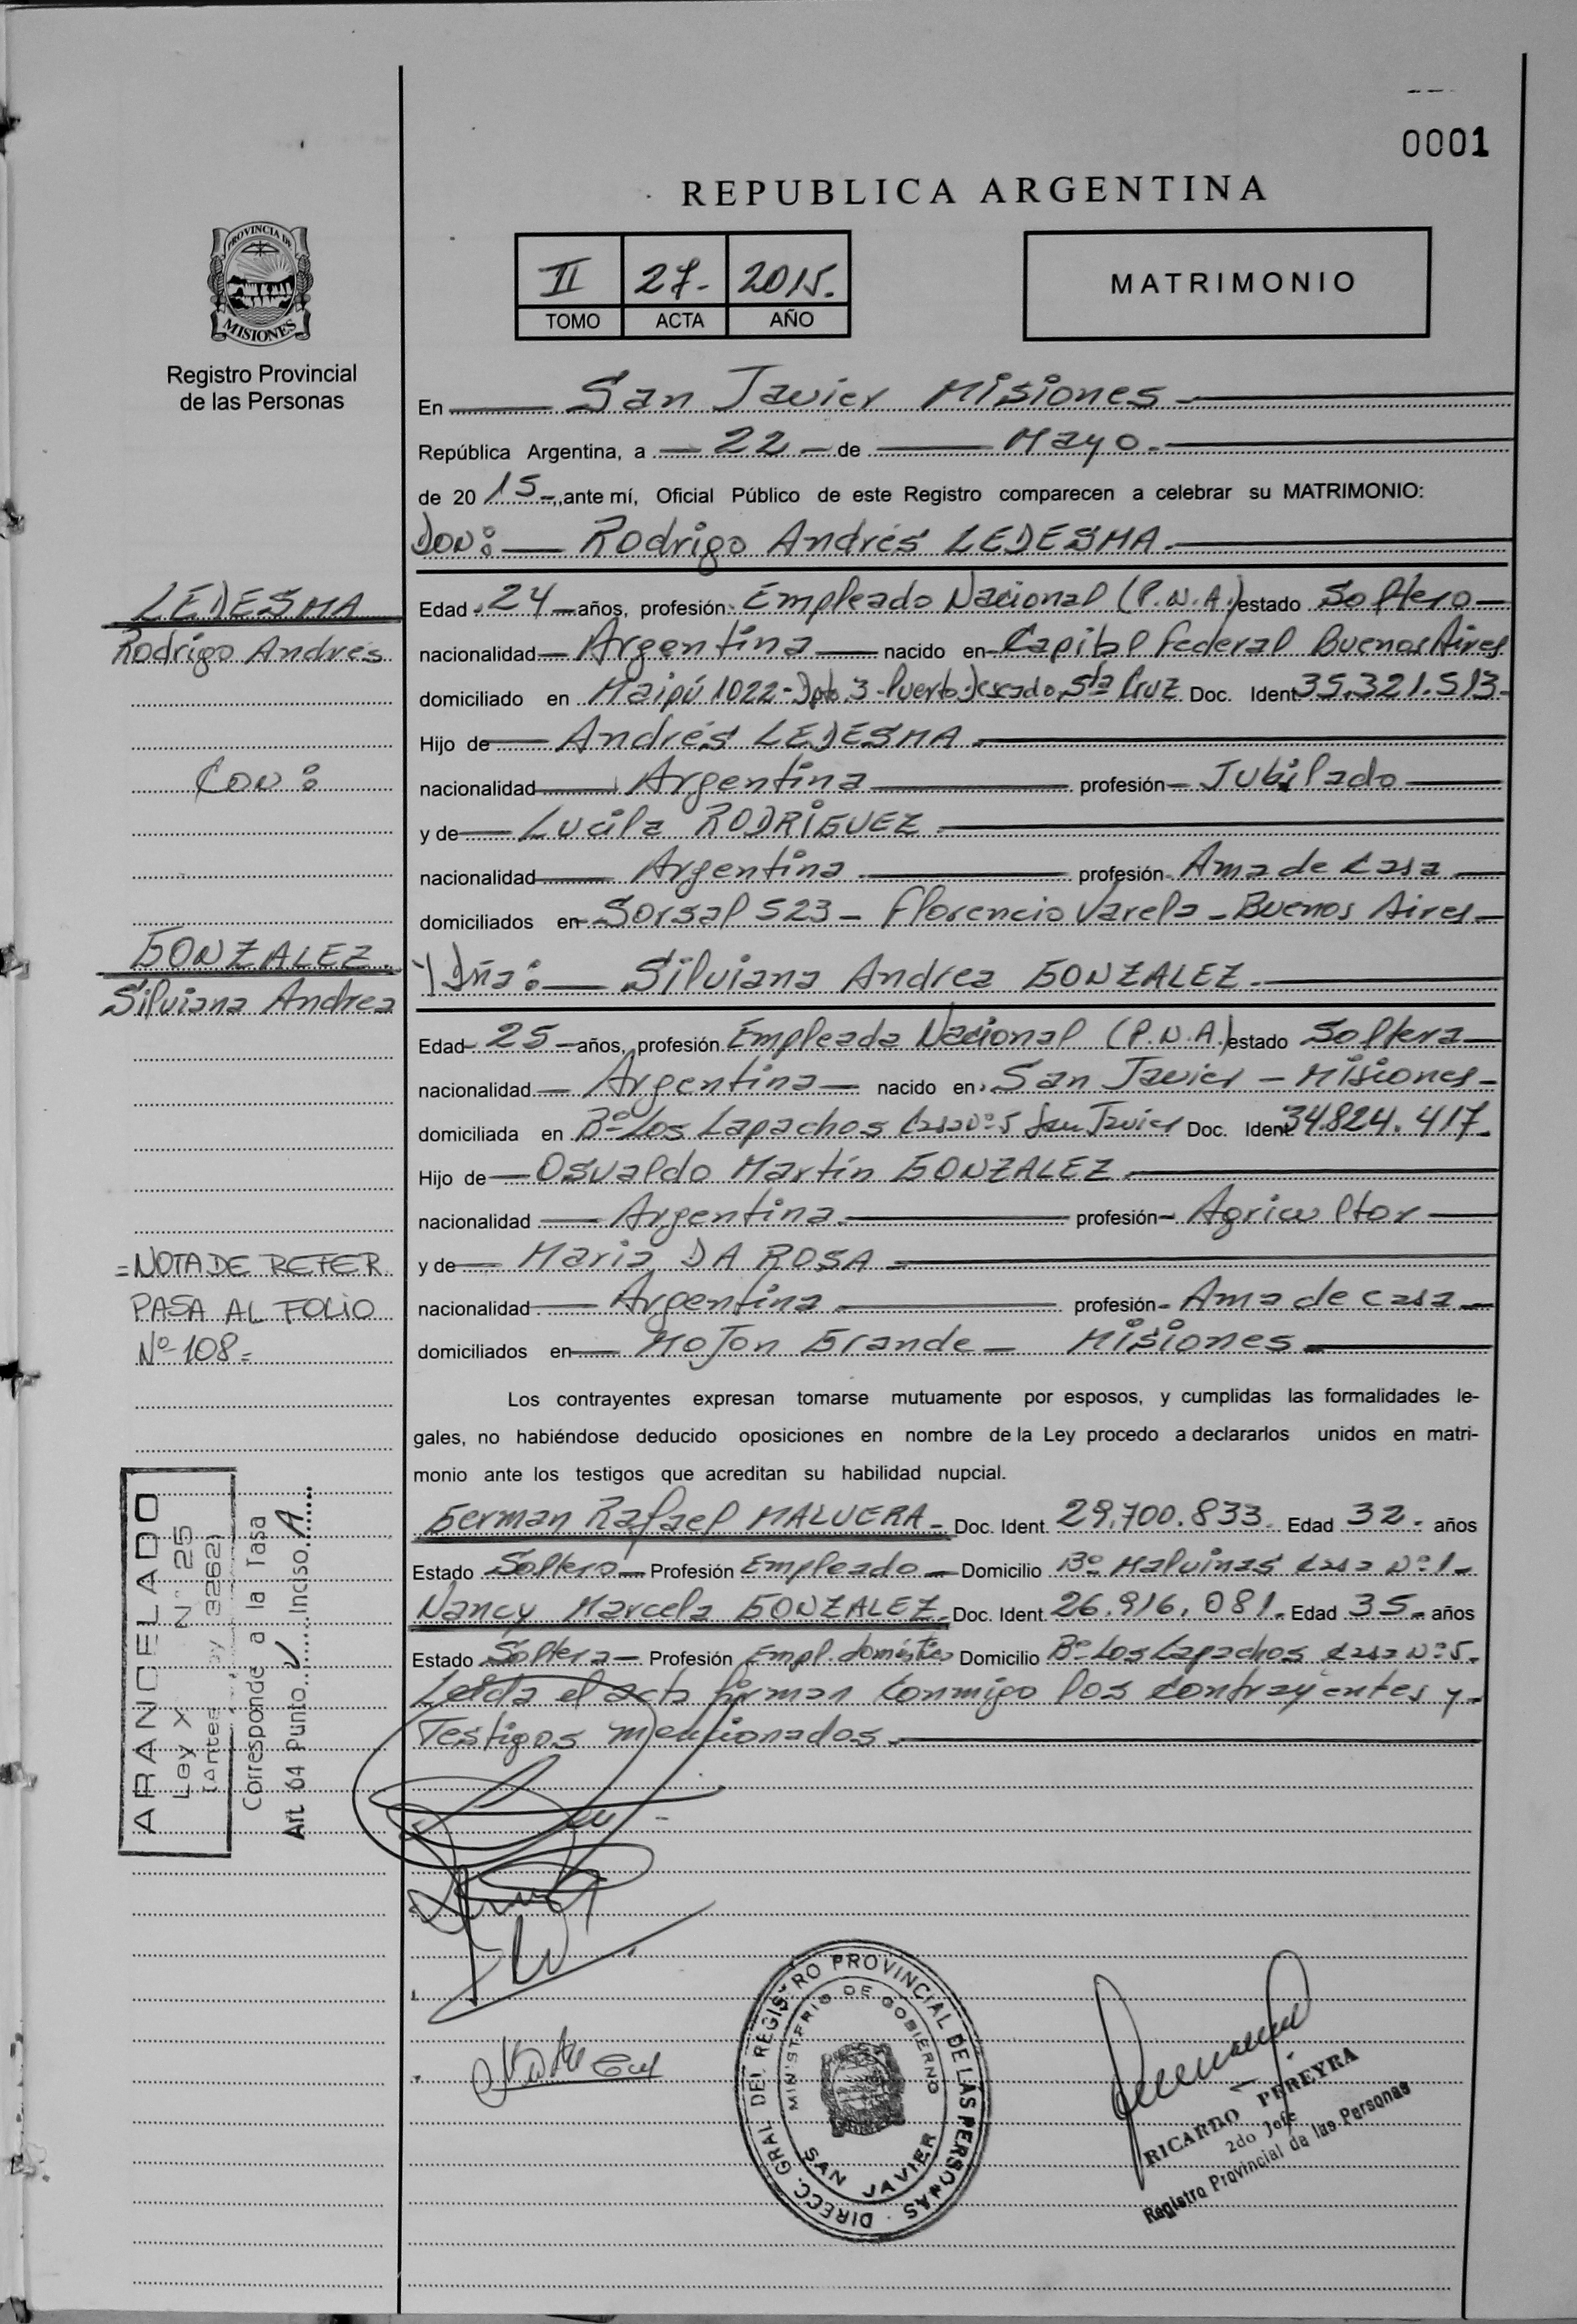 0001
REPUBLICA ARGENTINA
PROVINCIA DE
MISIONES
Registro Provincial
de las Personas
II 27- 2015.
TOMO ACTA AÑO
MATRIMONIO
En San Javier Misiones
República Argentina, a 22 de Mayo.
de 20 15, ante mí, Oficial Público de este Registro comparecen a celebrar su MATRIMONIO:
Don: Rodrigo Andrés LEDESMA.
LEDESMA
Rodrigo Andrés
Edad 24 años, profesión Empleado Nacional (P.N.A.) estado Soltero
nacionalidad Argentina nacido en Capital Federal Buenos Aires
domiciliado en Maipú 1022- Dpto 3- Puerto Deseado Sta Cruz Doc. Ident. 35.321.513-
Hijo de Andrés LEDESMA.
Con:
nacionalidad Argentina profesión Jubilado
y de Lucila RODRIGUEZ
nacionalidad Argentina profesión Ama de casa
domiciliados en Sorsal 523- Florencio Varela - Buenos Aires
GONZALEZ.
Silviana Andrea
Y Dña: Silviana Andrea GONZALEZ.
Edad 25 años, profesión Empleada Nacional (P.N.A.) estado Soltera
nacionalidad Argentina nacido en San Javier - Misiones-
domiciliada en Bº Los Lapachos Casa Nº 5 San Javier Doc. Ident. 34.824.417.
Hijo de Osvaldo Martín GONZALEZ.
nacionalidad Argentina. profesión Agricultor
y de Maria DA ROSA
nacionalidad Argentina profesión Ama de casa
domiciliados en Mojon Grande - Misiones
=NOTA DE REFER
PASA AL FOLIO
Nº 108=
Los contrayentes expresan tomarse mutuamente por esposos, y cumplidas las formalidades le-
gales, no habiéndose deducido oposiciones en nombre de la Ley procedo a declararlos unidos en matri-
monio ante los testigos que acreditan su habilidad nupcial.
German Rafael MALVERA- Doc. Ident. 29.700.833. Edad 32. años
Estado Soltero Profesión Empleado Domicilio Bº Malvinas casa Nº 1-
Nancy Marcela GONZALEZ. Doc. Ident. 26.916.081. Edad 35. años
Estado Soltera Profesión Empl. doméstica Domicilio Bº Los Lapachos casa Nº 5.
Leída el acta firman conmigo los contrayentes y
Testigos mencionados.
ARANCELADO
Ley X N° 25
(Antes Ley 3262)
Corresponde a la Tasa
Art 64 Punto Inciso A
DIRECC. GRAL. DEL REGISTRO PROVINCIAL DE LAS PERSONAS
MINISTERIO DE GOBIERNO
SAN JAVIER
RICARDO PEREYRA
2do Jefe
Registro Provincial de las Personas